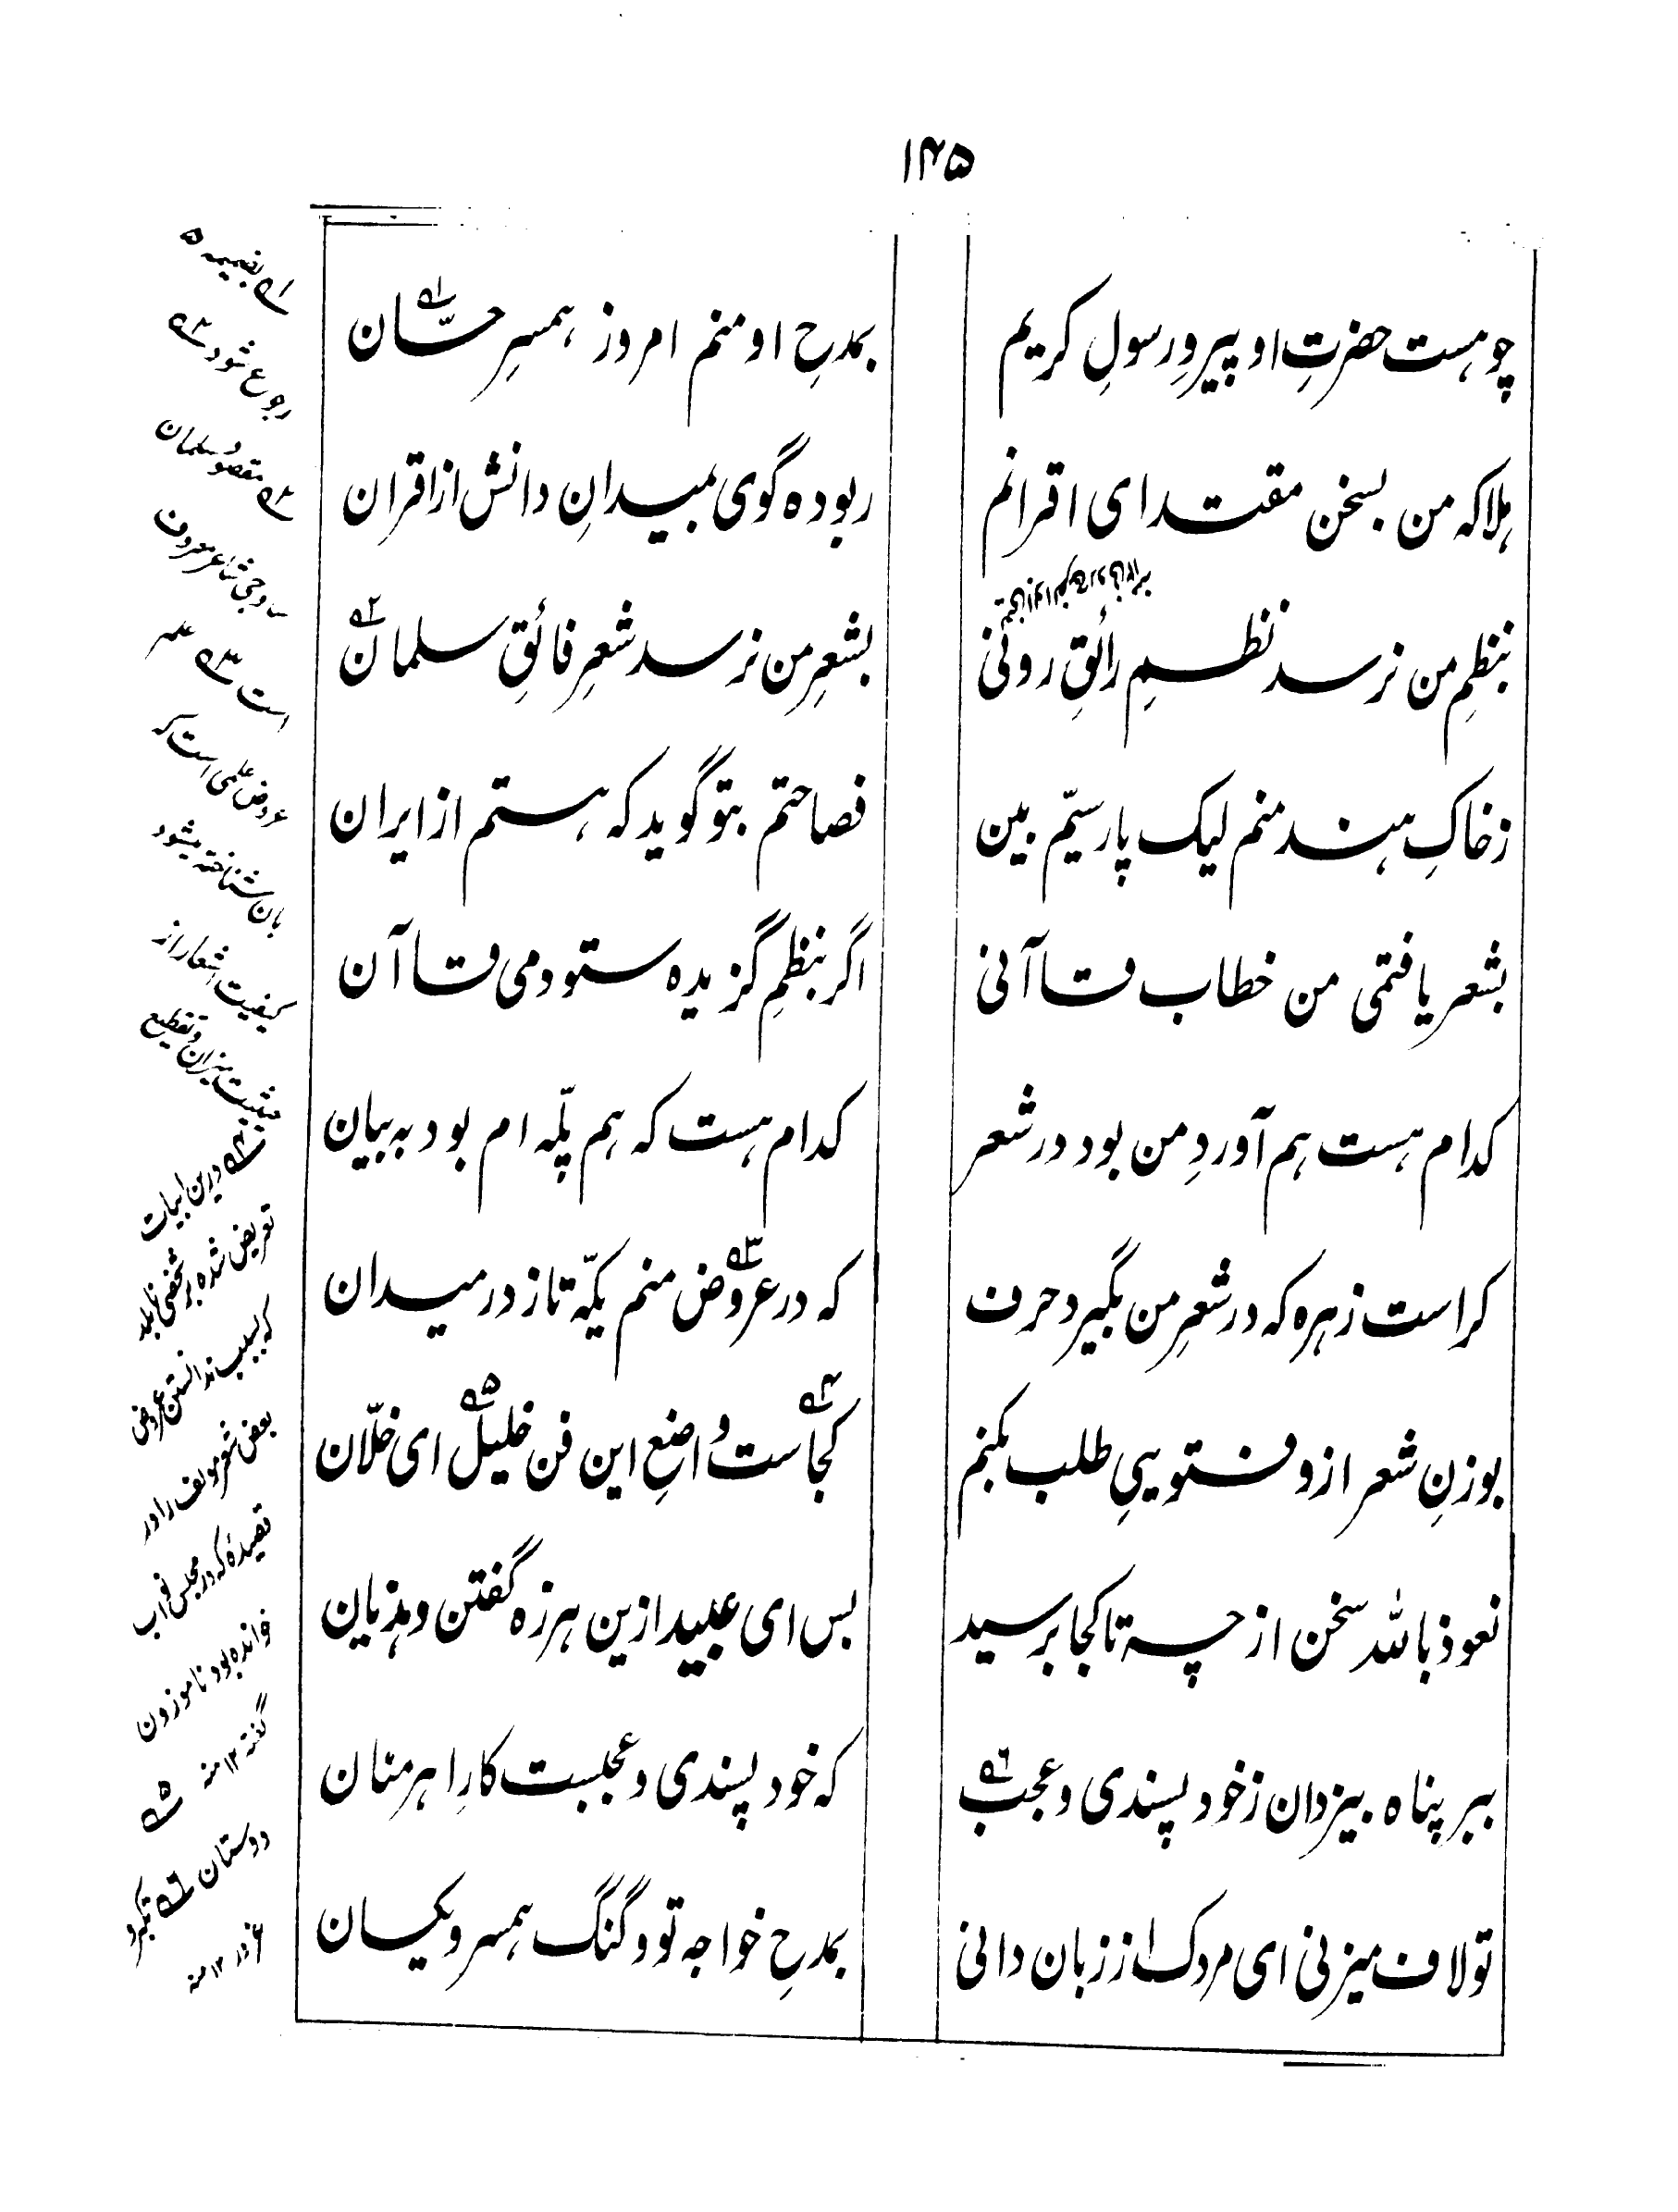 ۱۴۵
چو هست حضرتِ او پیروِ رسولِ کریم
بمدحِ او منم امروز همسرِ حسّان
هلاکه من بسخن مقتدای اقرانم
ربوده گوی بمیدانِ دانش از اقران
بنظمِ من نرسد نظمِ رائقِ رونی
بشعرِ من نرسد شعرِ فائقِ سلمان
زخاکِ هند منم لیک پارسیّم بین
فصاحتم بتو گوید که هستم از ایران
بشعر یافتمی من خطاب قاآنی
اگر بنظمِ گزیده ستودمی قاآن
کدام هست هم آوردِ من بود در شعر
کدام هست که هم پلّه ام بود به بیان
کراست زهره که در شعرِ من بگیرد حرف
که در عروض منم یکّه تاز در میدان
بوزنِ شعر ازو فتویی طلب بکنم
کجاست واضعِ این فن خلیل ای خلّان
نعوذ بالله سخن از چه تا کجا برسید
بس ای عبید ازین هرزه گفتن و هذیان
ببر پناه بیزدان زخود پسندی و عجب
که خود پسندی و عجبست کارِ اهرمنان
تو لاف میزنی ای مردک از زبان دانی
بمدحِ خواجه تو و گنگ همسر و یکسان
۱ بضمیمه ۵
رجوع شود ۲
مقصود سلمان
ساوجی شاعر معروف
است ۳ علم
عروض علمی است که
بان شناخته میشود
کیفیت اشعار از
حیثیت میزان و تقطیع
۴ درین ابیات
تعریض شده بر شخصی
که بسبب ندانستن عروض
بعض شعر مولف را در
قصیدهٔ که در مجلس نواب
خوانده بود ناموزون
گفته ۱۲ منه ۵
دوستان ۶ تکبر و
غرور ۱۲ منه